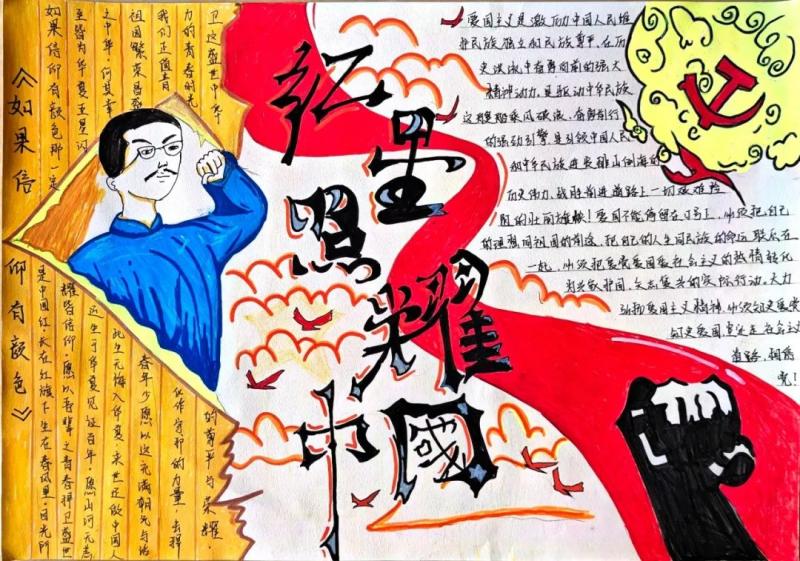 红星照耀中國
《如果信仰有颜色》
如果信仰有颜色那一定
是中国红·长在红旗下生在春风里·目光所
至皆为华夏五星闪
耀皆信仰·愿以吾辈之青春捍卫盛世
之中华·何其幸
生于华夏见证百年·愿山河无恙
祖国繁荣昌盛
此生无悔入华夏来世还做中国人
我们正值青
春年少愿以这充满朝气与活
力的青春时光
化作守护的力量·去捍
卫这盛世中华
的和平与荣耀·
爱国主义是激励中国人民维
护民族独立和民族尊严,在历
史洪流中奋勇向前的强大
精神动力,是驱动中华民族
这艘巨轮乘风破浪、奋勇前行
的强劲引擎,是引领中国人民
和中华民族迸发排山倒海的
历史伟力、战胜前进道路上一切艰难险
阻的壮丽旗帜!爱国不能停留在口号上,必须把自己
的理想同祖国的前途、把自己的人生同民族的命运联系在
一起,必须把爱党爱国爱社会主义的热情转化
为兴我中国、矢志复兴的实际行动。大力
弘扬爱国主义精神,必须